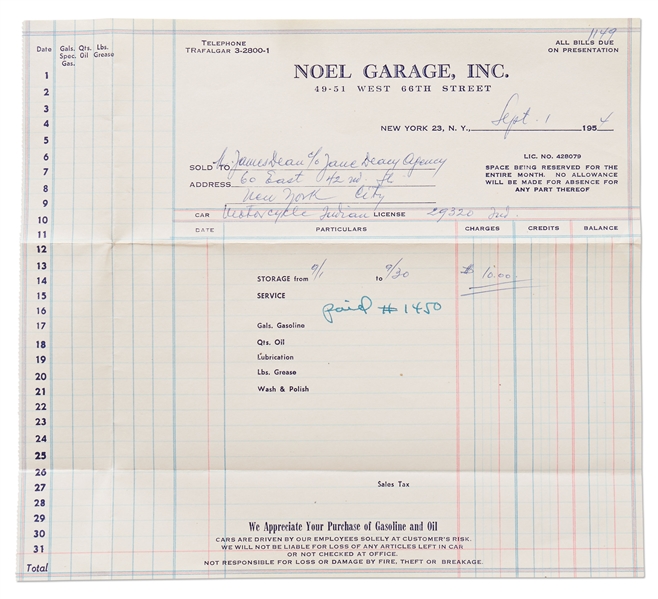 1149
TELEPHONE
TRAFALGAR 3-2800-1
ALL BILLS DUE
ON PRESENTATION
Date Gals. Spec. Gas. Qts. Oil Lbs. Grease
NOEL GARAGE, INC.
49-51 WEST 66TH STREET
NEW YORK 23, N. Y., Sept. 1 1954
SOLD TO Mr. James Dean c/o Jane Deacy Agency
ADDRESS 60 East 42nd St.
New York City
LIC. NO. 428079
SPACE BEING RESERVED FOR THE
ENTIRE MONTH. NO ALLOWANCE
WILL BE MADE FOR ABSENCE FOR
ANY PART THEREOF
CAR Motorcycle Indian LICENSE 29320 Ind.
DATE PARTICULARS CHARGES CREDITS BALANCE
STORAGE from 9/1 to 9/30 $ 10.00
SERVICE
paid # 1450
Gals. Gasoline
Qts. Oil
Lubrication
Lbs. Grease
Wash & Polish
Sales Tax
We Appreciate Your Purchase of Gasoline and Oil
CARS ARE DRIVEN BY OUR EMPLOYEES SOLELY AT CUSTOMER'S RISK.
WE WILL NOT BE LIABLE FOR LOSS OF ANY ARTICLES LEFT IN CAR
OR NOT CHECKED AT OFFICE.
NOT RESPONSIBLE FOR LOSS OR DAMAGE BY FIRE, THEFT OR BREAKAGE.
1
2
3
4
5
6
7
8
9
10
11
12
13
14
15
16
17
18
19
20
21
22
23
24
25
26
27
28
29
30
31
Total